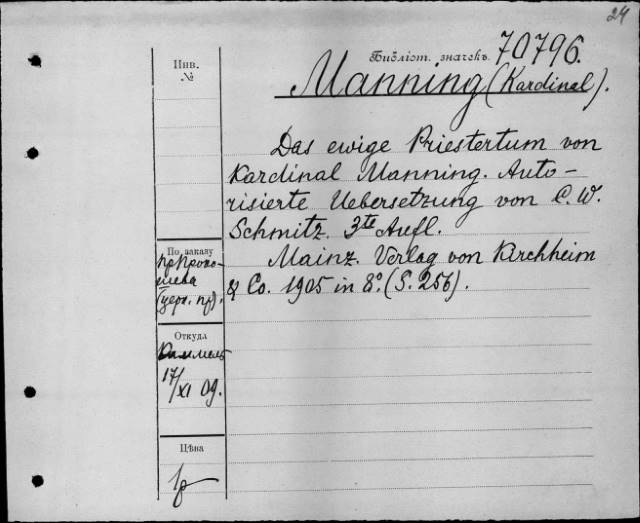 24
Инв.
№
Библіот. значекъ 70796.
Manning (Kardinal).
Das ewige Priestertum von
Kardinal Manning. Auto-
risierte Uebersetzung von C. W.
Schmitz. 3te Aufl.
Mainz. Verlag von Kirchheim
& Co. 1905 in 8º. (S. 256).
По заказу
пр. Проко-
шева
(церк. пр).
Откуда
Киммель
17/XI 09.
Цѣна
1р